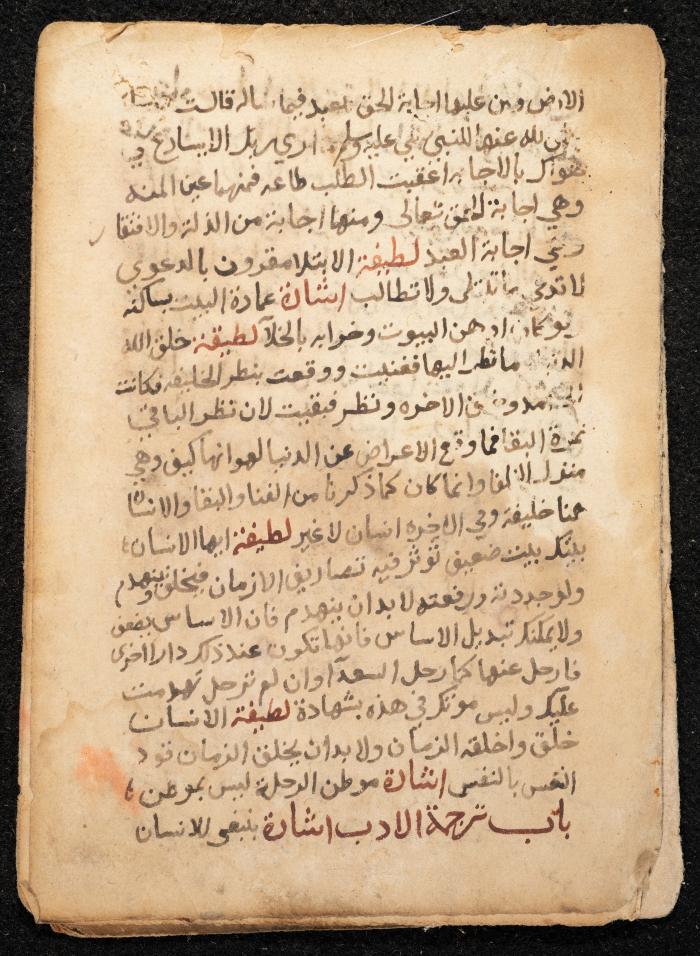 الارض ومن عليها اجابة الحق لعبد فيما ساله قالت
الله عنها للنبي صلى الله عليه وسلم ارى ربك الا يسارع في
هواك بالاجابه اعقبت الطلب طاعه فمنها عين المنه
وهي اجابة الحق تعالى ومنها اجابة من الذلة والافتقا
وهي اجابة العبد لطيفة الابتلا مقرون بالدعوى
لا تدعي ولا تطالب اشارة عمارة البيت بساكنه
البيوت وخرابه بالخلا لطيفة خلق الله
ما نظر اليها ففنيت ووقعت بنظر الخليفه فكانت
الاخره ونظر فبقيت لان نظر الباقي
ثمرة البقا فما وقع الاعراض عن الدنيا لهوانها كيف وهي
منزل الخلفا وانما كان كما ذكرنا من الفنا والبقا والانسا
هنا خليفة وفي الاخره انسان لا غير لطيفة ايها الانسان
بيتك بيت ضعيف تؤثر فيه تصاريف الازمان فيخلق وينهدم
ولو جددته ورفعته لا بد ان ينهدم فان الاساس يضعف
ولا يمكنك تبديل الاساس فانها تكون عند ذلك دارا اخرى
فارحل عنها كما رحل السعدا وان لم ترحل تهدمت
عليك وليس موتك في هذه بشهادة لطيفة الانسان
خلق واخلقه الزمان ولا بد ان يخلق الزمان قود
النفس بالنفس اشارة موطن الرحلة ليس بموطن
باب ترجمة الادب اشارة ينبغي للانسان